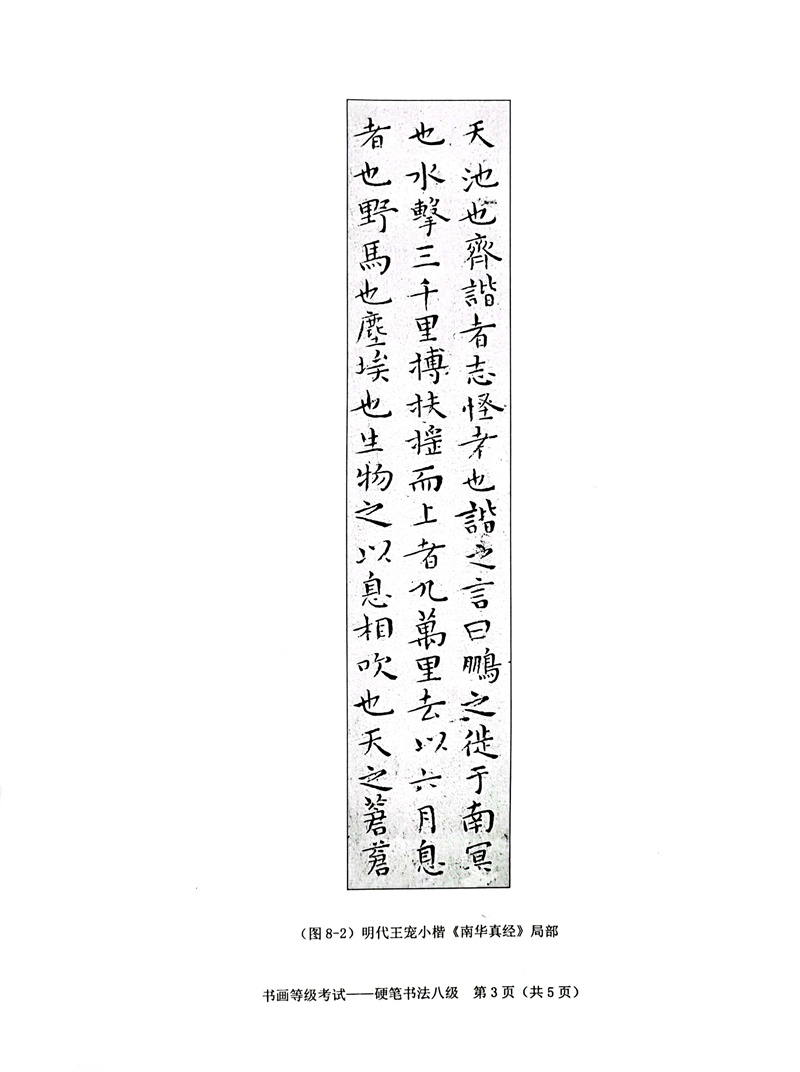 天池也齊諧者志怪者也諧之言曰鵬之徙于南冥
也水擊三千里摶扶搖而上者九萬里去以六月息
者也野馬也塵埃也生物之以息相吹也天之蒼蒼
(图 8-2) 明代王宠小楷《南华真经》局部
书画等级考试——硬笔书法八级 第 3 页（共 5 页）